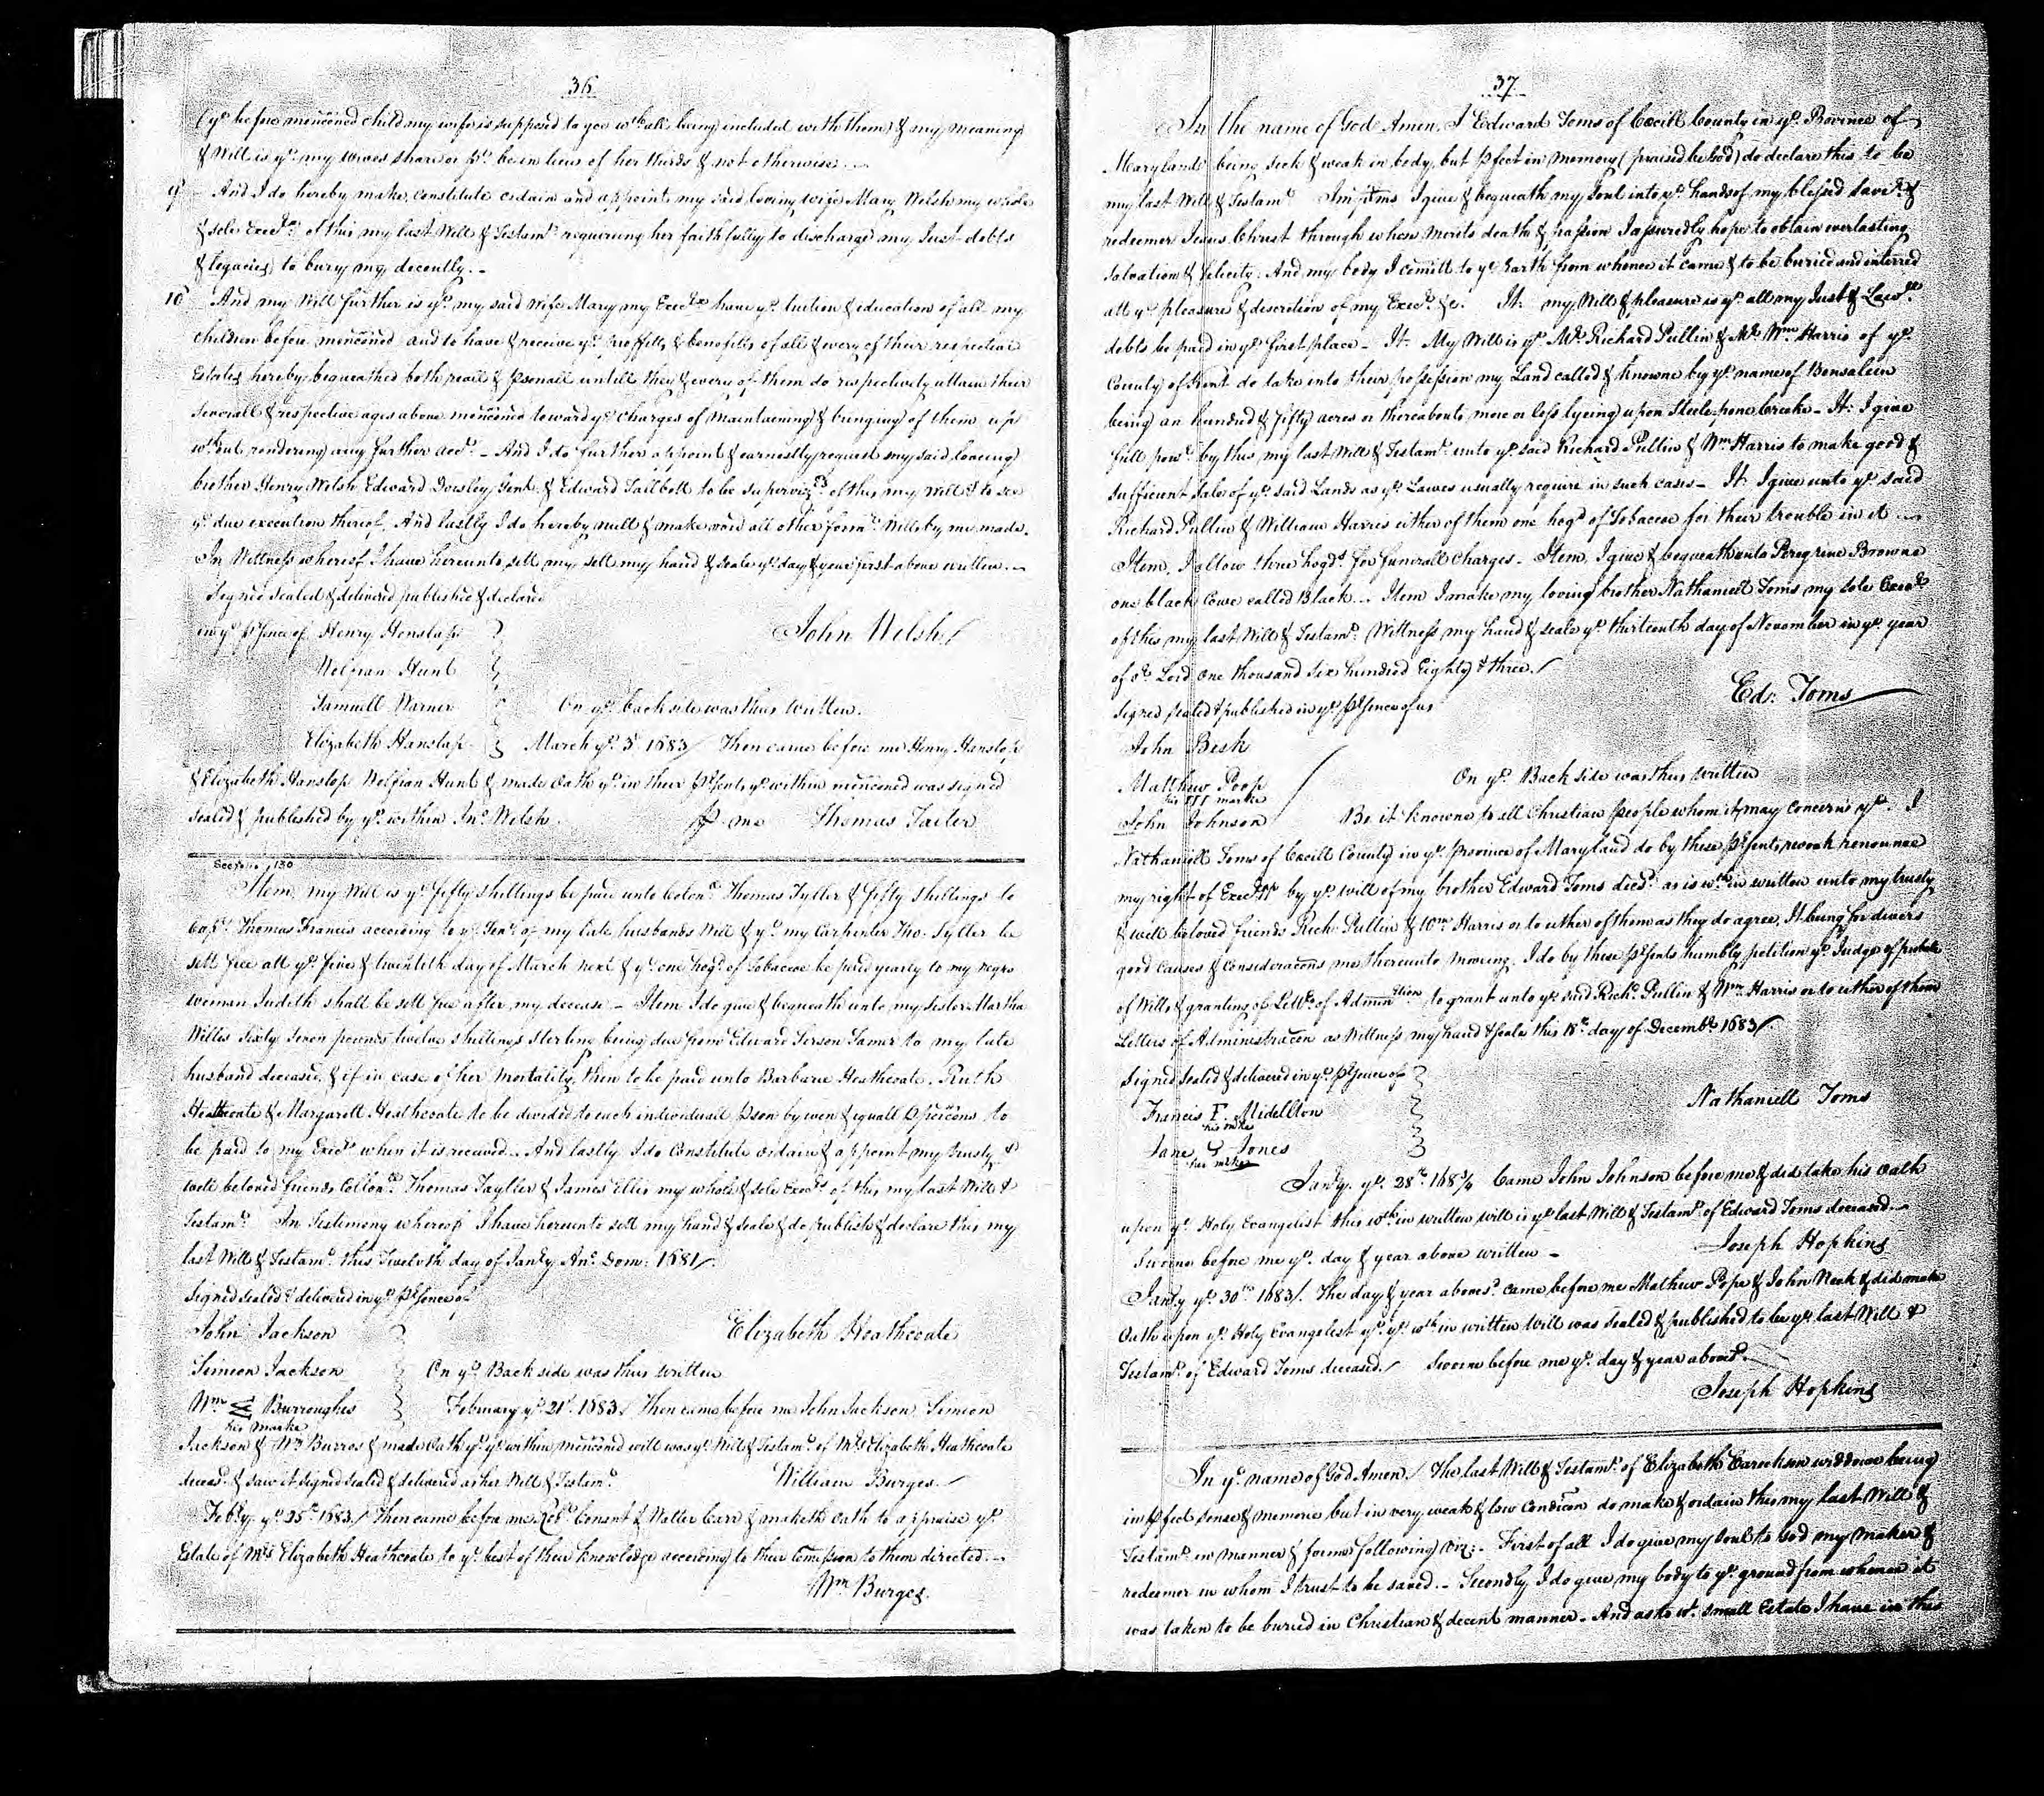 36
(ye before menconed child my wife is supposed to goe wth all being included with them) & my meaning
& Will is yt my wives share or pt be in lieu of her thirds & not otherwise.
9 And I do hereby make, constitute ordain and appoint my said loving wife Mary Welsh my whole
& sole Execrx of this my last Will & Testamt requireing her faithfully to discharge my Just debts
& legacies to bury my decently. -
10 And my Will further is yt my said wife Mary my Execrx have ye tuition & education of all my
children before menconed and to have & receive ye proffitts & benefitts of all & every of their respective
Estates hereby bequeathed both reall & psonall untill they & every of them do respectively attain their
severall & respective ages above menconed toward ye charges of maintaining & bringing of them up
wthout rendering any further acct - And I do further appoint & earnestly request my said loveing
brother Henry Welsh Edward Dorsley, Gent. & Edward Tailbott to be supervizrs of this my Will & to see
ye due execution thereof, And lastly I do hereby null & make void all other formr Wills by me made.
In Wittness whereof I have hereunto sett my sett my hand & seale ye day & year first above written. -
Signed sealed & delivered published & declared
in ye psence of Henry Hanslap
John Welsh/
Wolfran Hunt
Samuell Warner
On ye back side was thus written.
Elizabeth Hanslap March ye 3d 1683/ Then came before me Henry Hanslop
& Elizabeth Hanslop Wolfran Hunt & made Oath yt in their psents ye within menconed was signed
sealed & published by ye within Jno Welsh. p me Thomas Tailer
See folio, 130
Item, my Will is yt fifty shillings be paid unto Colonll Thomas Tyller & fifty shillings to
Capt Thomas Francis according to ye Tenr of my late husbands Will & yt my Carpenter Tho. Tyller be
sett free att ye five & twentieth day of March next & yt one hogd of Tobaccoe be paid yearly to my negro
woman Judeth shall be sett free after my decease - Item I do give & bequeath unto my sister Martha
Willes Sixty seven pounds twelve shillings sterling being due from Edward Terson Tamer to my late
husband deceased, & if in case of her mortality, then to be paid unto Barbara Heathcoate, Ruth
Heathcoate & Margarett Heathcoate to be divided to each individuall pson by even & equall pporcons to
be paid to my Execr when it is received. And lastly I do Constitute ordain & appoint my trusty &
well beloved friends Collonll Thomas Tayller & James Ellis my whole & sole Execrs of this my last Will &
Testamt In Testimony whereof I have hereunto sett my hand & seale & do publish & declare this my
last Will & Testamt this Twelvth day of Janry Ano Dom: 1681/.
Signed sealed & delivered in ye psence of
John Jackson
Elizabeth Heathcoate
Simeon Jackson On ye Back side was thus written
Wm Burroughes February ye 21st 1683/ Then came before me John Jackson Simeon
his marke
Jackson & Wm Burros & made Oath yt ye within menconed will was ye Will & Testamt of Mrs Elizabeth Heathcoate
deceasd & saw it signed sealed & delivered as her Will & Testamt
William Burges/
Febry ye 25th 1683/ Then came before me Robt Conent & Walter Carr & maketh oath to appraise ye
Estate of Mrs Elizabeth Heathcoate to ye best of their knowledge according to their Comission to them directed. -
Wm Burges.
37
In the name of God Amen. I Edward Toms of Cecill County in ye Province of
Maryland being sick & weak in body, but pfect in memory (praised be God) do declare this to be
my last Will & Testamt Imptms I give & bequeath my soul into ye hands of my blessed Savr &
redeemer Jesus Christ through whose merits death & passion I assuredly hope to obtain everlasting
salvation & felicity. And my body I comitt to ye Earth from whence it came & to be buried and interred
att ye pleasure & discretion of my Execr &c. It. my Will & pleasure is yt all my Just & Lawll
debts be paid in ye first place - It. My Will is yt Mr Richard Pullin & Mr Wm Harris of ye
County of Kent do take into their possession my Land called & knowne by ye name of Bensalein
being an hundred & fifty acres or thereabouts more or less lyeing upon Steelepone Creeke - It: I give
full powr by this my last Will & Testamt unto ye said Richard Pullin & Wm Harris to make good &
sufficient Sale of ye said Lands as ye Lawes usually require in such cases - It. I give unto ye said
Richard Pullin & William Harris either of them one hogd of Tobaccoe for their trouble in it -
Item, I allow three hogds for funerall charges - Item, I give & bequeath unto Peregrine Browne
one black Cowe called Black - Item I make my loving brother Nathaniell Toms my sole Execr
of this my last Will & Testamt Wittness my hand & seale ye thirteenth day of November in ye year
of or Lord one thousand six hundred Eighty & three./
Ed: Toms
Signed sealed & published in ye psence of us
John Besk
Matthew Poop
On ye Back side was thus written
his III marke
John Johnson Be it knowne to all Christian people whom it may concerne yt I
Nathaniell Toms of Cecill County in ye province of Maryland do by these psents revoak renounce
my right of Execrsp by ye will of my brother Edward Toms decsd as is wthin written unto my trusty
& well beloved friends Rich: Pullin & Wm Harris or to either of them as they do agree, It being for divers
good causes & consideracons me thereunto moving, I do by these psents humbly petition ye Judge of probate
of Wills & granting of Lettrs of Adminstion to grant unto ye said Richd Pullin & Wm Harris or to either of them
Letters of Administracon as Wittness my hand & seale this 18th day of Decembr 1683/.
Signed sealed & delivered in ye psence of
Francis F. Midellton
his mke
Nathaniell Toms
Jane Jones
her mke
Janry ye 28th 1683/4 Came John Johnson before me & did take his oath
upon ye Holy Evangelist this wthin written will is ye last Will & Testamt of Edward Toms deceased. -
Sworne before me ye day & year above written -
Joseph Hopkins
Janry ye 30th 1683/. The day & year abovesd came before me Mathew Pope & John Neak & did make
Oath upon ye Holy Evangelist yt ye wthin written Will was sealed & published to be ye last Will &
Testamt of Edward Toms deceased./ Sworne before me ye day & year abovesd.
Joseph Hopkins
In ye name of God Amen./ The last Will & Testamt of Elizabeth Carockson widdow being
in pfect sense & memorie but in very weak & low condicon do make & ordain this my last Will &
Testamt in manner & forme following Viz: - First of all I do give my soul to God my maker &
redeemer in whom I trust to be saved. - Secondly I do give my body to ye ground from whence it
was taken to be buried in Christian & decent manner - And as to wt small Estate I have in this